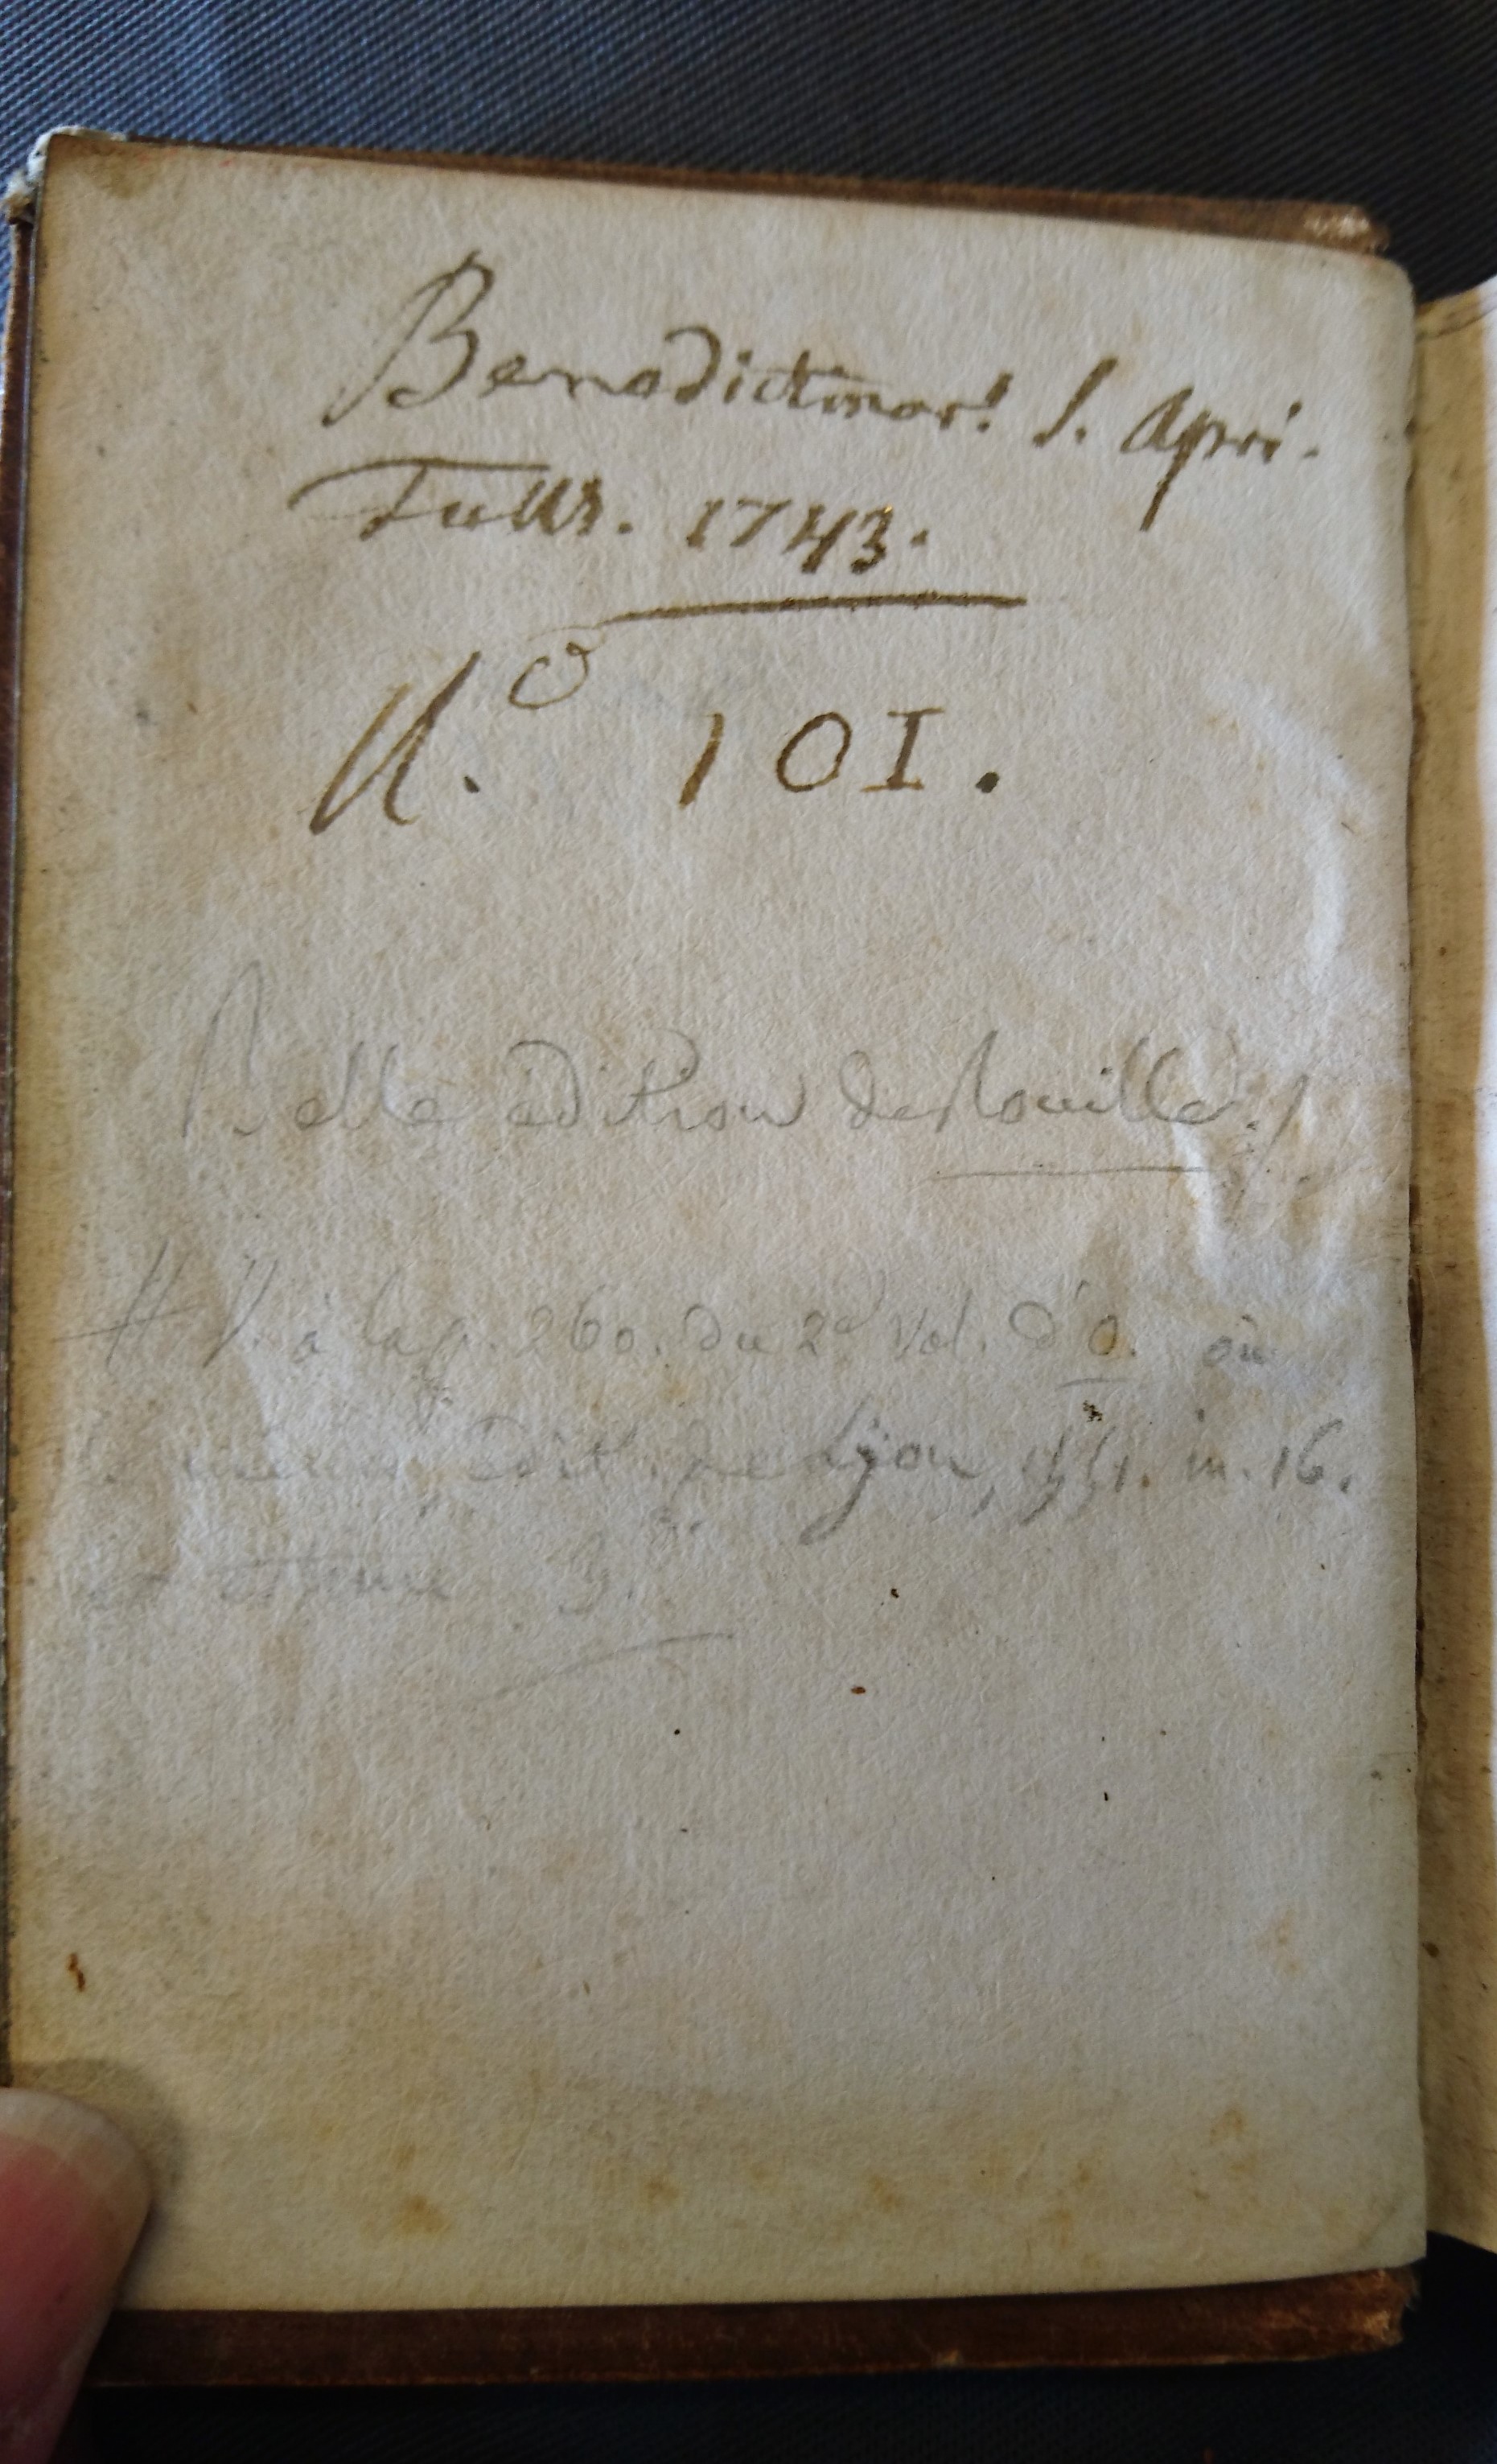 Benedictinor! S. Apri.
Tull. 1743.
N.o 101.
Belle édition de Rouille./
# V. à la p. 260. du 2d Vol. d'O. où
édit. de Lyon, 1551. in. 16.